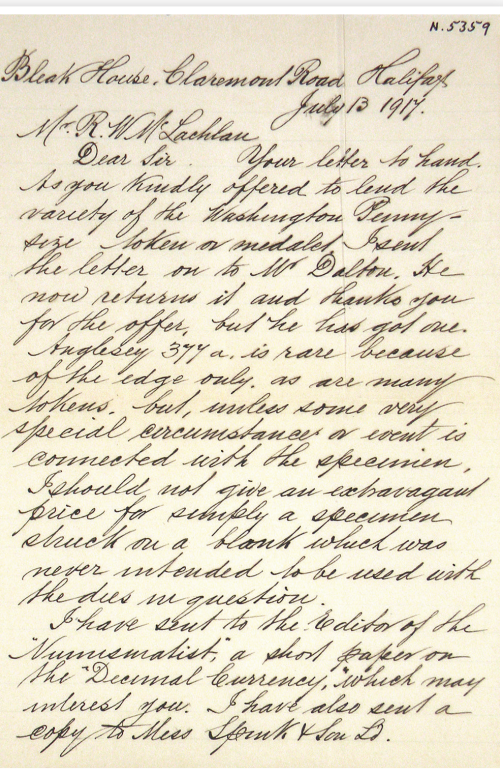 N.5359
Bleak House, Claremont Road Halifax
July 13 1917.
Mr. R. W. McLachlan
Dear Sir. Your letter to hand.
As you kindly offered to lend the
variety of the Washington Penny-
size token or medalet I sent
the letter on to Mr Dalton. He
now returns it and thanks you
for the offer, but he has got one.
Anglesey 377 a. is rare because
of the edge only, as are many
tokens, but, unless some very
special circumstance or event is
connected with the specimen,
I should not give an extravagant
price for simply a specimen
struck on a blank which was
never intended to be used with
the dies in question.
I have sent to the Editor of the
"Numismatist," a short paper on
the "Decimal Currency," which may
interest you. I have also sent a
copy to Mess Spink & Son Ld.